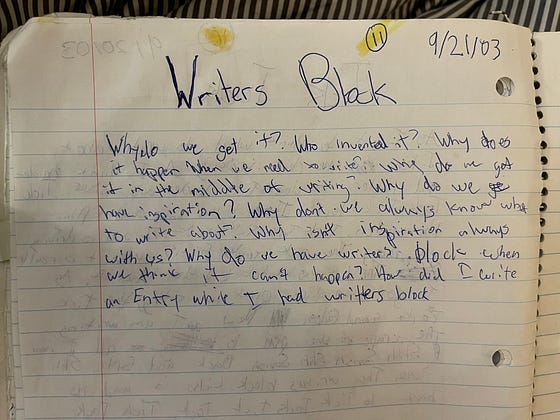 11
9/21/03
Writers Block
Why do we get it? Who invented it? Why does
it happen when we need to write? Why do we get
it in the middle of writing? Why do we
have inspiration? Why dont we always know what
to write about? Why isnt inspiration always
with us? Why do we have writers block when
we think it can't happen? How did I write
an Entry while I had writters block